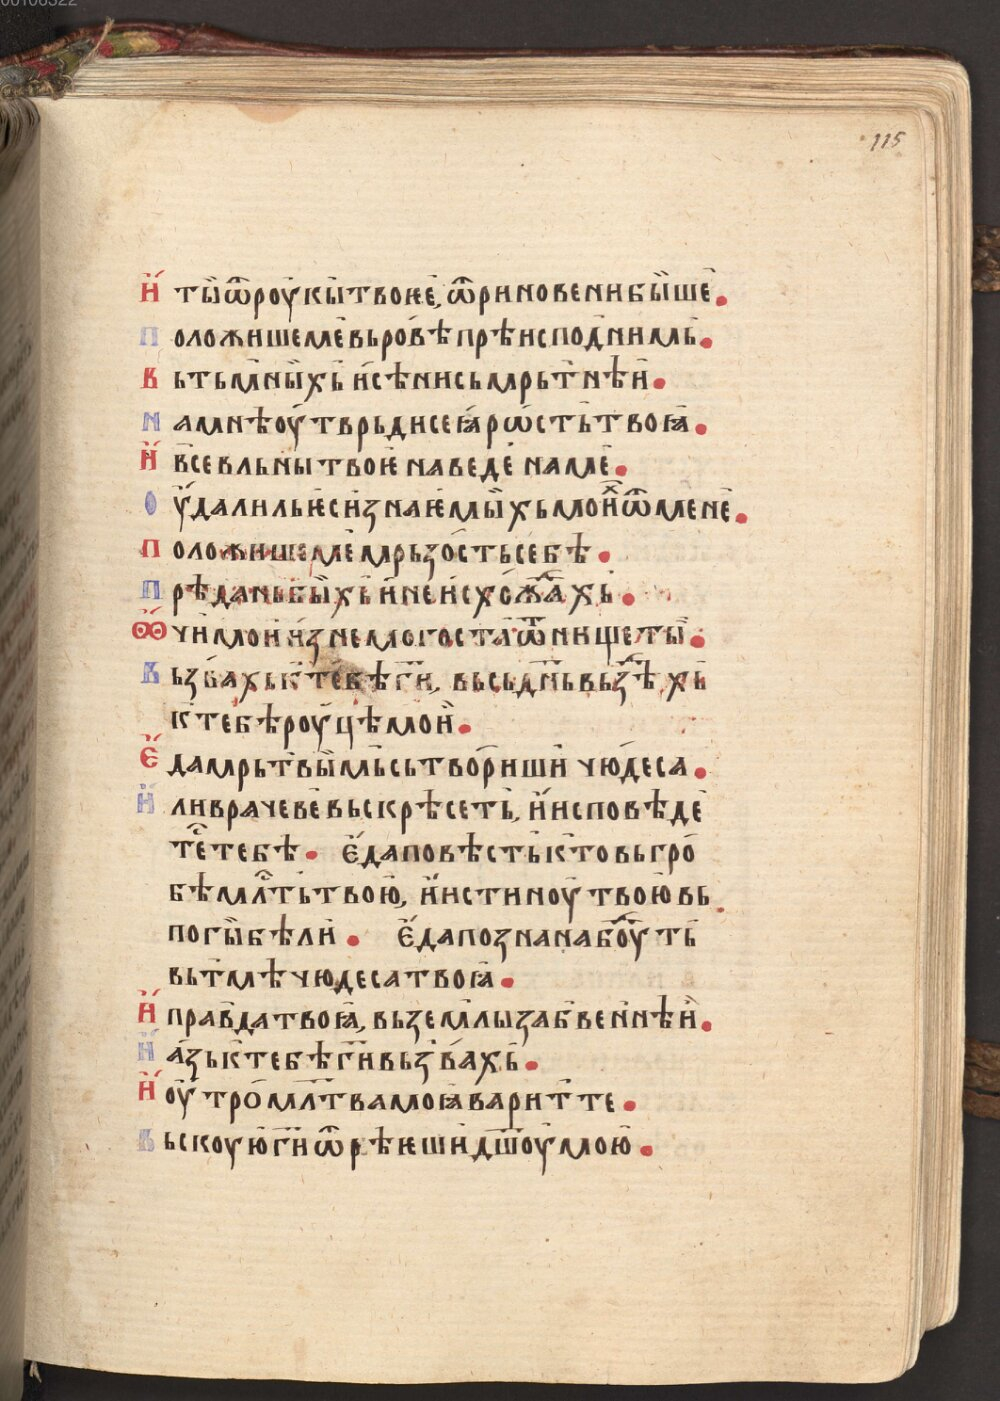 00106322
115
И ты ѿ роукы твоѥ, ѿриновени быше.
Положише ме вь ровѣ прѣисподнимь.
Вь тьмныхь и сѣни сьмрьтнѣи.
На мнѣ оутврьди се ꙗрость твоꙗ.
И все вльны твоѥ наведе на ме.
Оудалиль ѥси знаѥмыхь моих ѿ мене.
Положише ме мрьзость себѣ.
Прѣдань быхь и не исхождахь.
Ѡчи мои изнемогоста ѿ нищеты.
Вьзвахь к тебѣ ги, вьсь днь вьздѣхь
к тебѣ роуцѣ мои.
Еда мрьтвымь сьтвориши чюдеса.
Или врачеве вьскрѣсеть, и исповѣде
те тебѣ. Еда повѣсть кто вь гро
бѣ млть твою, и истиноу твою вь
погыбѣли. Еда познана боудть
вь тмѣ чюдеса твоꙗ.
И правда твоꙗ, вь земли забвеннѣи.
И азь к тебѣ ги вьзвахь.
И оутро млтва моꙗ варит те.
Вьскоую ги ѿрѣѥши дшоу мою.